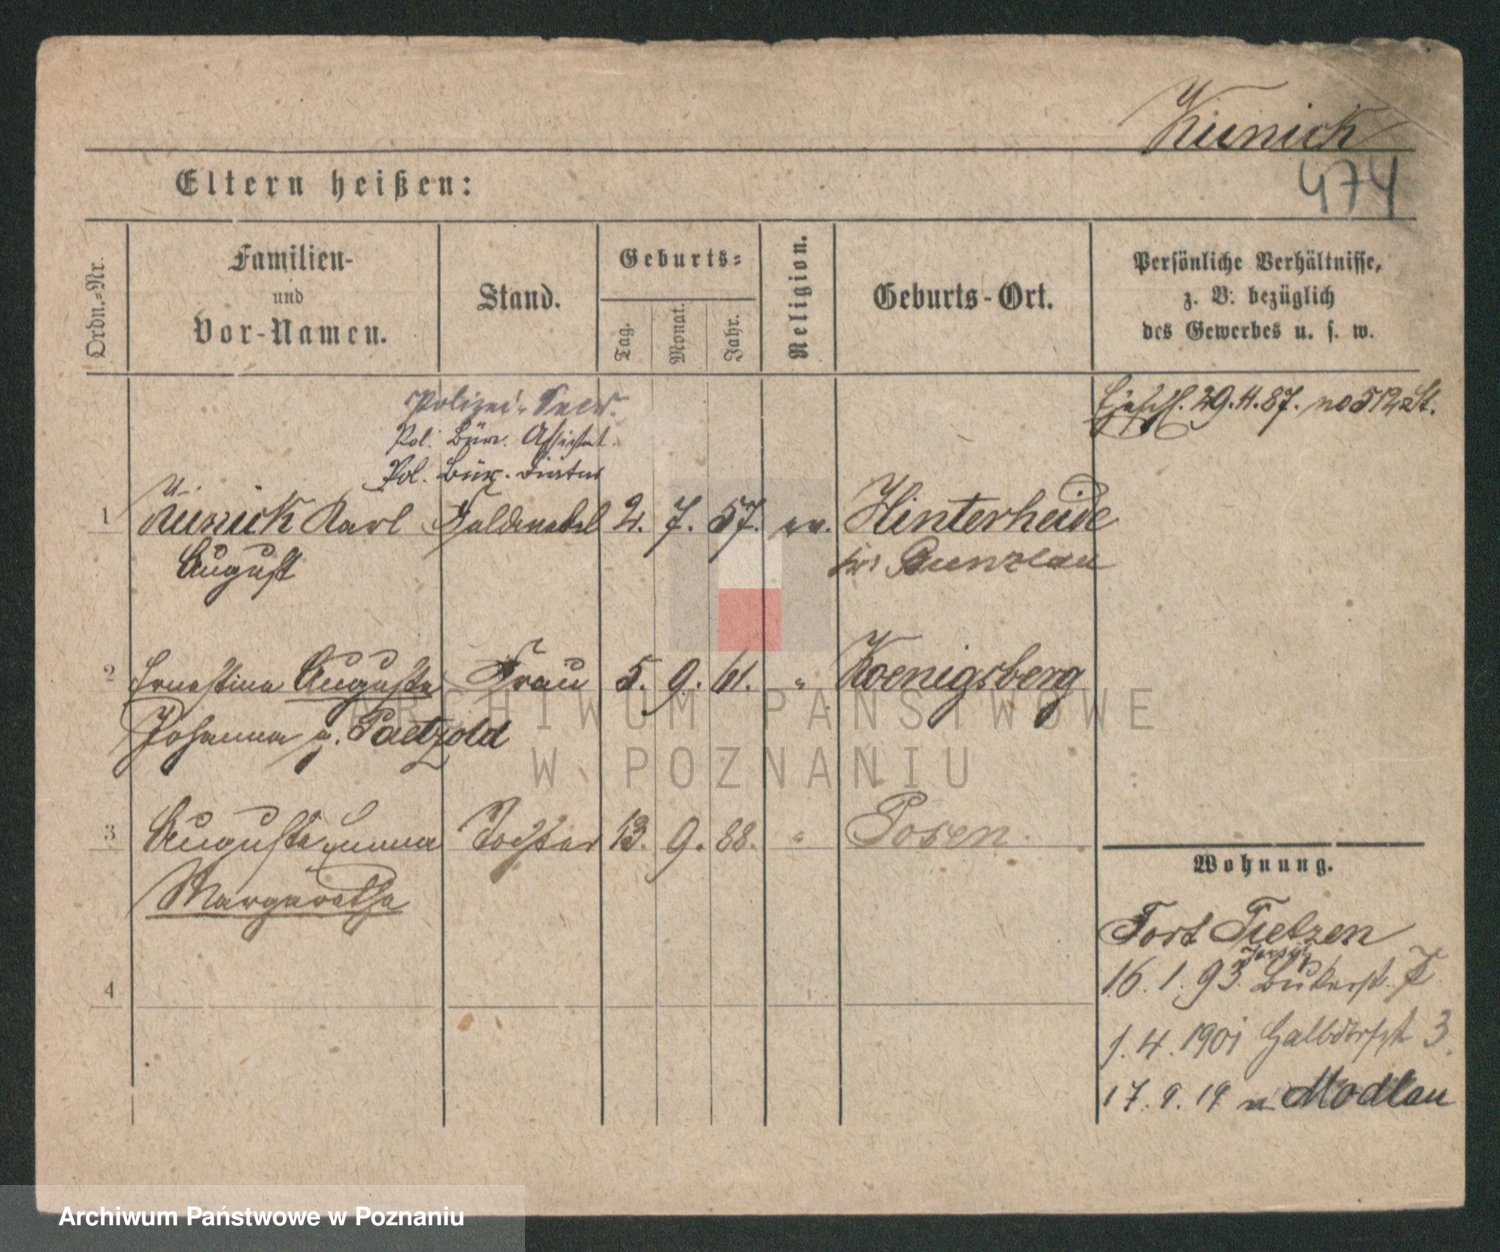 Kunick
474
Eltern heißen:
Ordn.=Nr.
Familien-
und
Vor-Namen.
Stand.
Geburts=
Tag.
Monat.
Jahr.
Religion.
Geburts-Ort.
Persönliche Verhältnisse,
z. B. bezüglich
des Gewerbes u. s. w.
Polizei-Secr.
Pol. Bür. Assistent
Pol. Bür. Diätar
29.4.87. no 512
1 Kunick Karl Feldwebel 2. 7. 57. ev. Hinterheide
August
Bunzlau
2 Ernestine Auguste Frau 5. 9. 61. " Koenigsberg
Johanna g. Paetzold
3 Auguste Emma Tochter 13. 9. 88. " Posen
Margarethe
4
Wohnung.
Fort Tietzen
Jersitz
16.1.93. Bukerst. 7
1.4.1901 Halbdorfstr 3.
17.9.19 n Modlau
ARCHIWUM PAŃSTWOWE
W POZNANIU
Archiwum Państwowe w Poznaniu